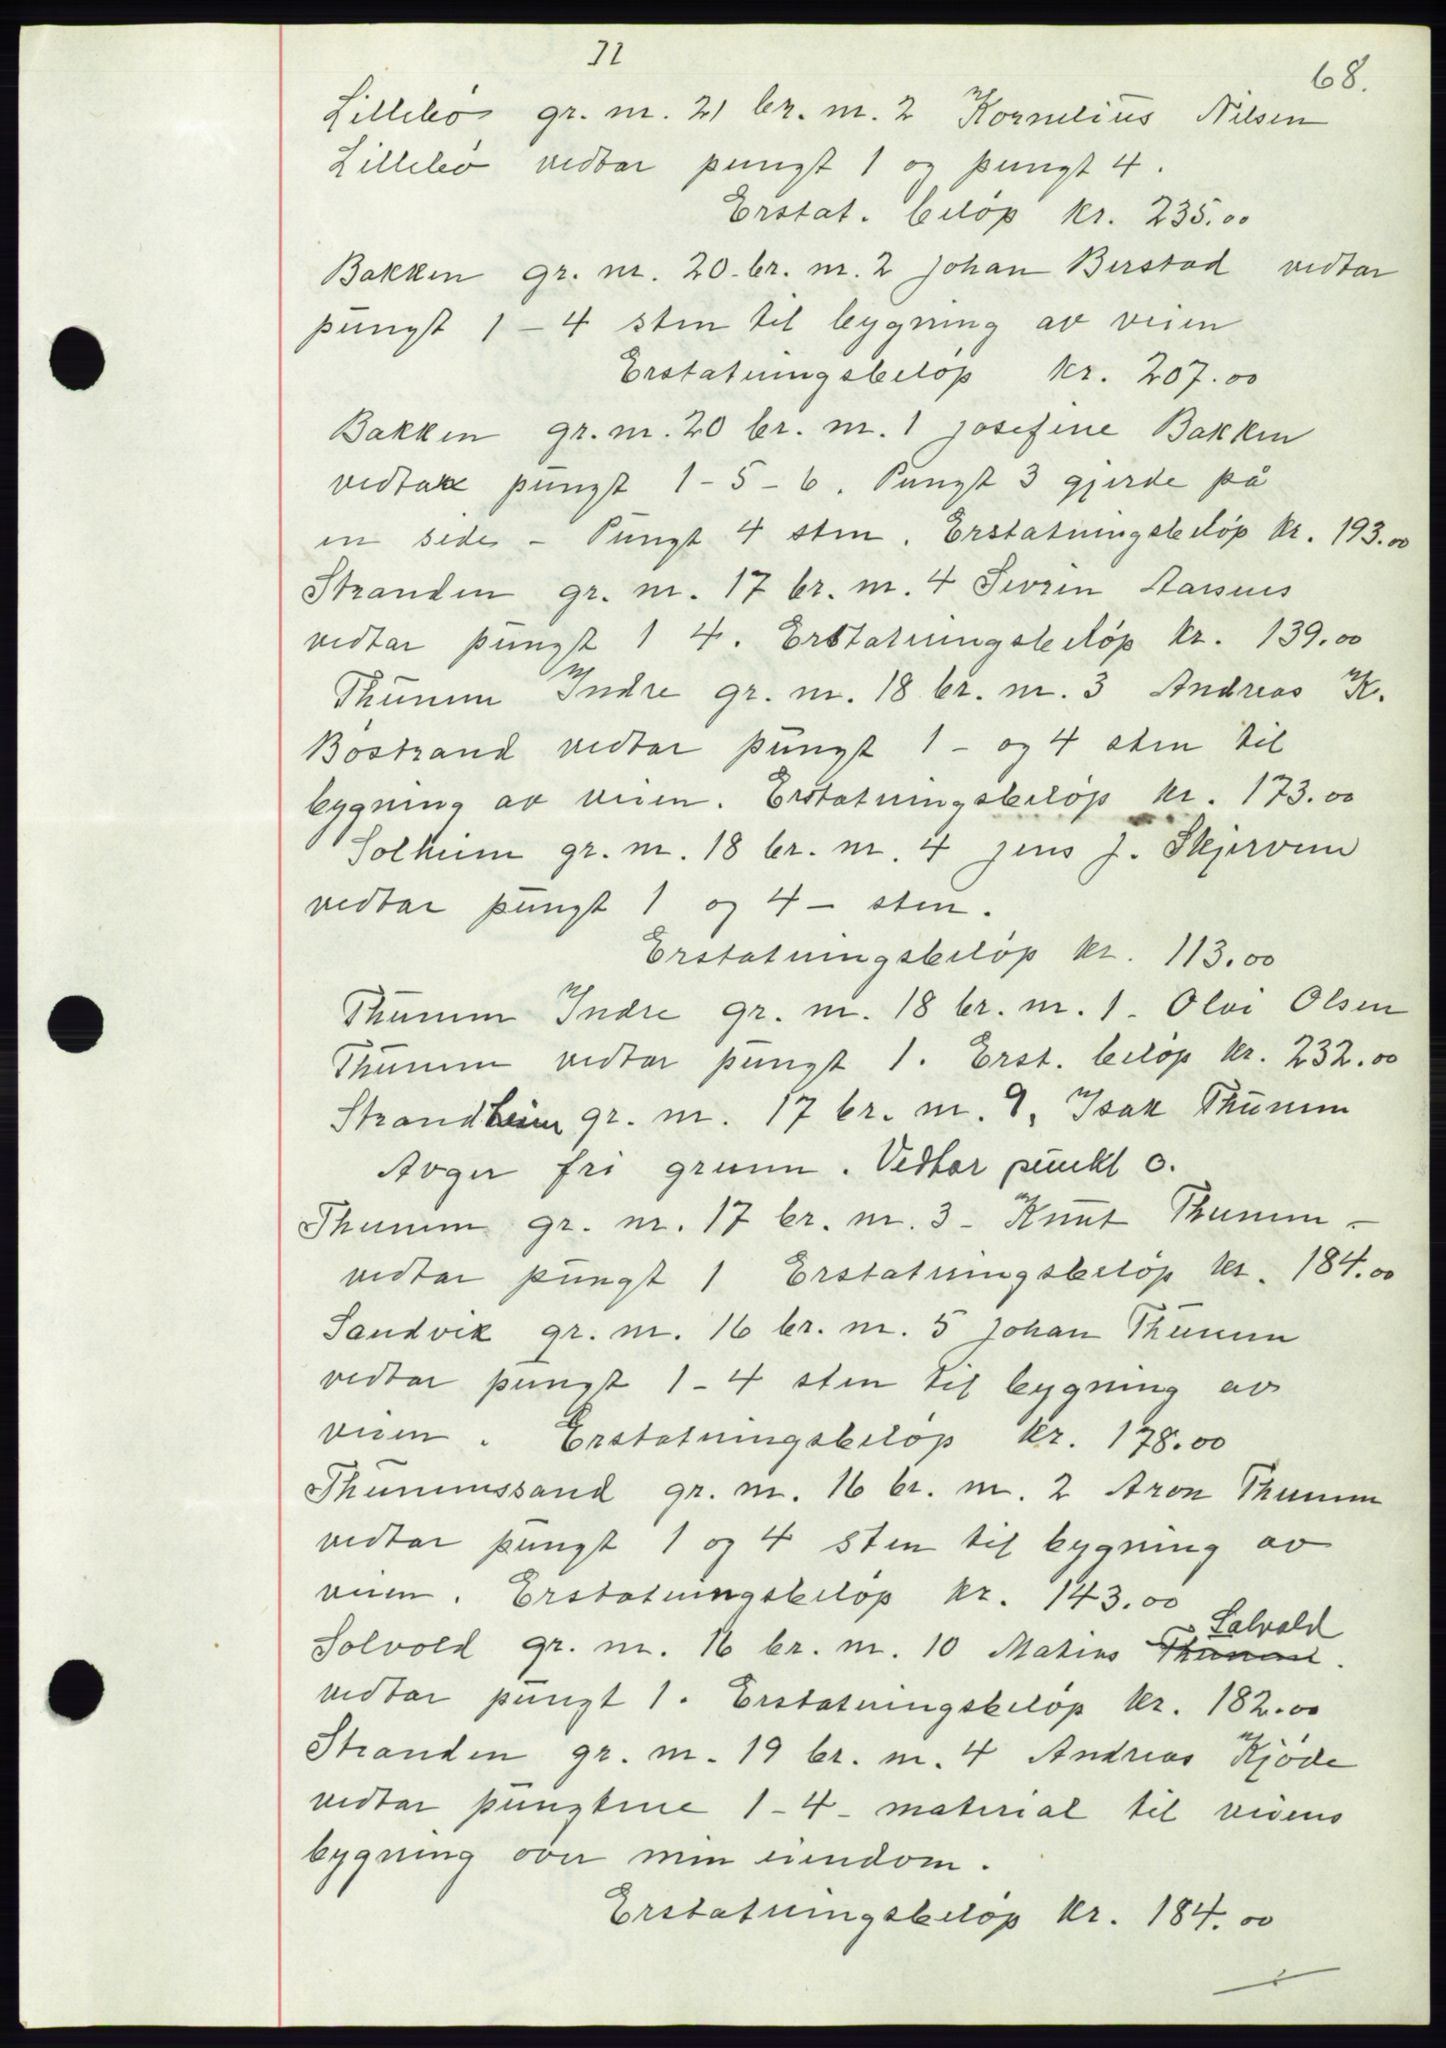 71
68.
Lillebö gr. nr. 21 br. nr. 2 Kornelius Nilsen
Lillebö vedtar pungt 1 og pungt 4.
Erstat. beløp kr. 235.00
Bakken gr. nr. 20 - br. nr. 2 Johan Berstad vedtar
pungt 1 - 4 sten til bygning av veien
Erstatningsbeløp kr. 207.00
Bakken gr. nr. 20 br. nr. 1 Josefine Bakken
vedtar pungt 1 - 5 - 6. Pungt 3 gjerde på
en side - Pungt 4 sten. Erstatningsbeløp kr. 193.00
Stranden gr. nr. 17 br. nr. 4 Sevrin Aarsnes
vedtar pungt 1 4. Erstatningsbeløp kr. 139.00
Thunem Indre gr. nr. 18 br. nr. 3 Andreas K.
Böstrand vedtar pungt 1 - og 4 sten til
bygning av veien. Erstatningsbeløp kr. 173.00
Solheim gr. nr. 18 br. nr. 4 Jens J. Skjervem
vedtar pungt 1 og 4 - sten.
Erstatningsbeløp kr. 113.00
Thunem Indre gr. nr. 18 br. nr. 1 - Olai Olsen
Thunem vedtar pungt 1. Erst. beløp kr. 232.00
Strandheim gr. nr. 17 br. nr. 9, Isak Thunem
Avger fri grunn. Vedtar punkt o.
Thunem gr. nr. 17 br. nr. 3 - Knut Thunem -
vedtar pungt 1 Erstatningsbeløp kr. 184.00
Sandvik gr. nr. 16 br. nr. 5 Johan Thunem
vedtar pungt 1 - 4 sten til bygning av
veien. Erstatningsbeløp kr. 178.00
Thunemssand gr. nr. 16 br. nr. 2 Aron Thunem
vedtar pungt 1 og 4 sten til bygning av
veien. Erstatningsbeløp kr. 143.00
Solvold gr. nr. 16 br. nr. 10 Matias Thunem. Solvold
vedtar pungt 1. Erstatningsbeløp kr. 182.00
Stranden gr. nr. 19 br. nr. 4 Andreas Kjöde
vedtar pungtene 1 - 4 - material til veiens
bygning over min eiendom.
Erstatningsbeløp kr. 184.00